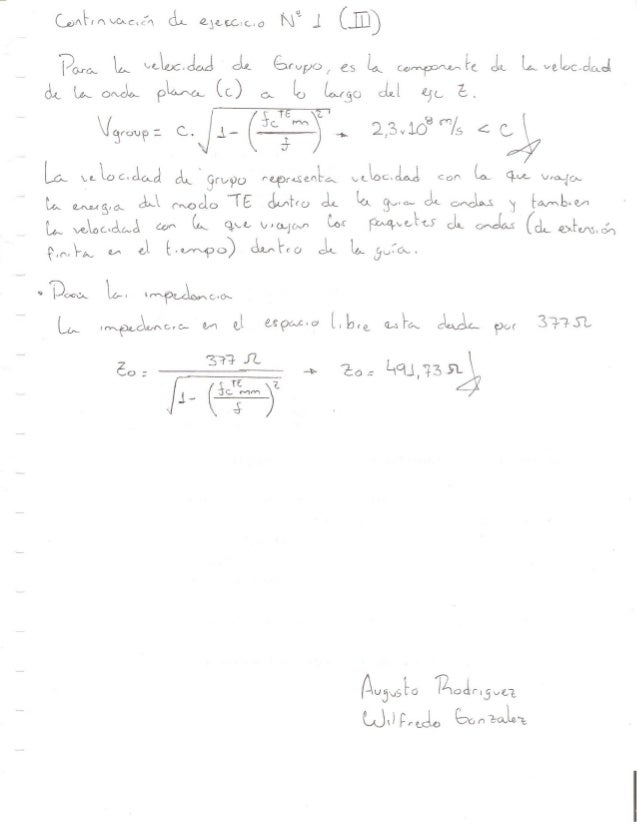 Continuación de ejercicio Nº 1 (III)
Para la velocidad de Grupo, es la componente de la velocidad
de la onda plana (c) a lo largo del eje Z.
Vgroup = c. √(1 - (fc^TE mn / f)^2) → 2,3.10^8 m/s < c
La velocidad de grupo representa velocidad con la que viaja
la energia del modo TE dentro de la guia de ondas y tambien
la velocidad con la que viajan los paquetes de ondas (de extensión
finita en el tiempo) dentro de la guía.
• Para la impedancia
La impedancia en el espacio libre esta dada por 377 Ω
Zo = 377 Ω / √(1 - (fc^TE mn / f)^2) → Zo = 491,73 Ω
Augusto Rodriguez
Wilfredo Gonzalez